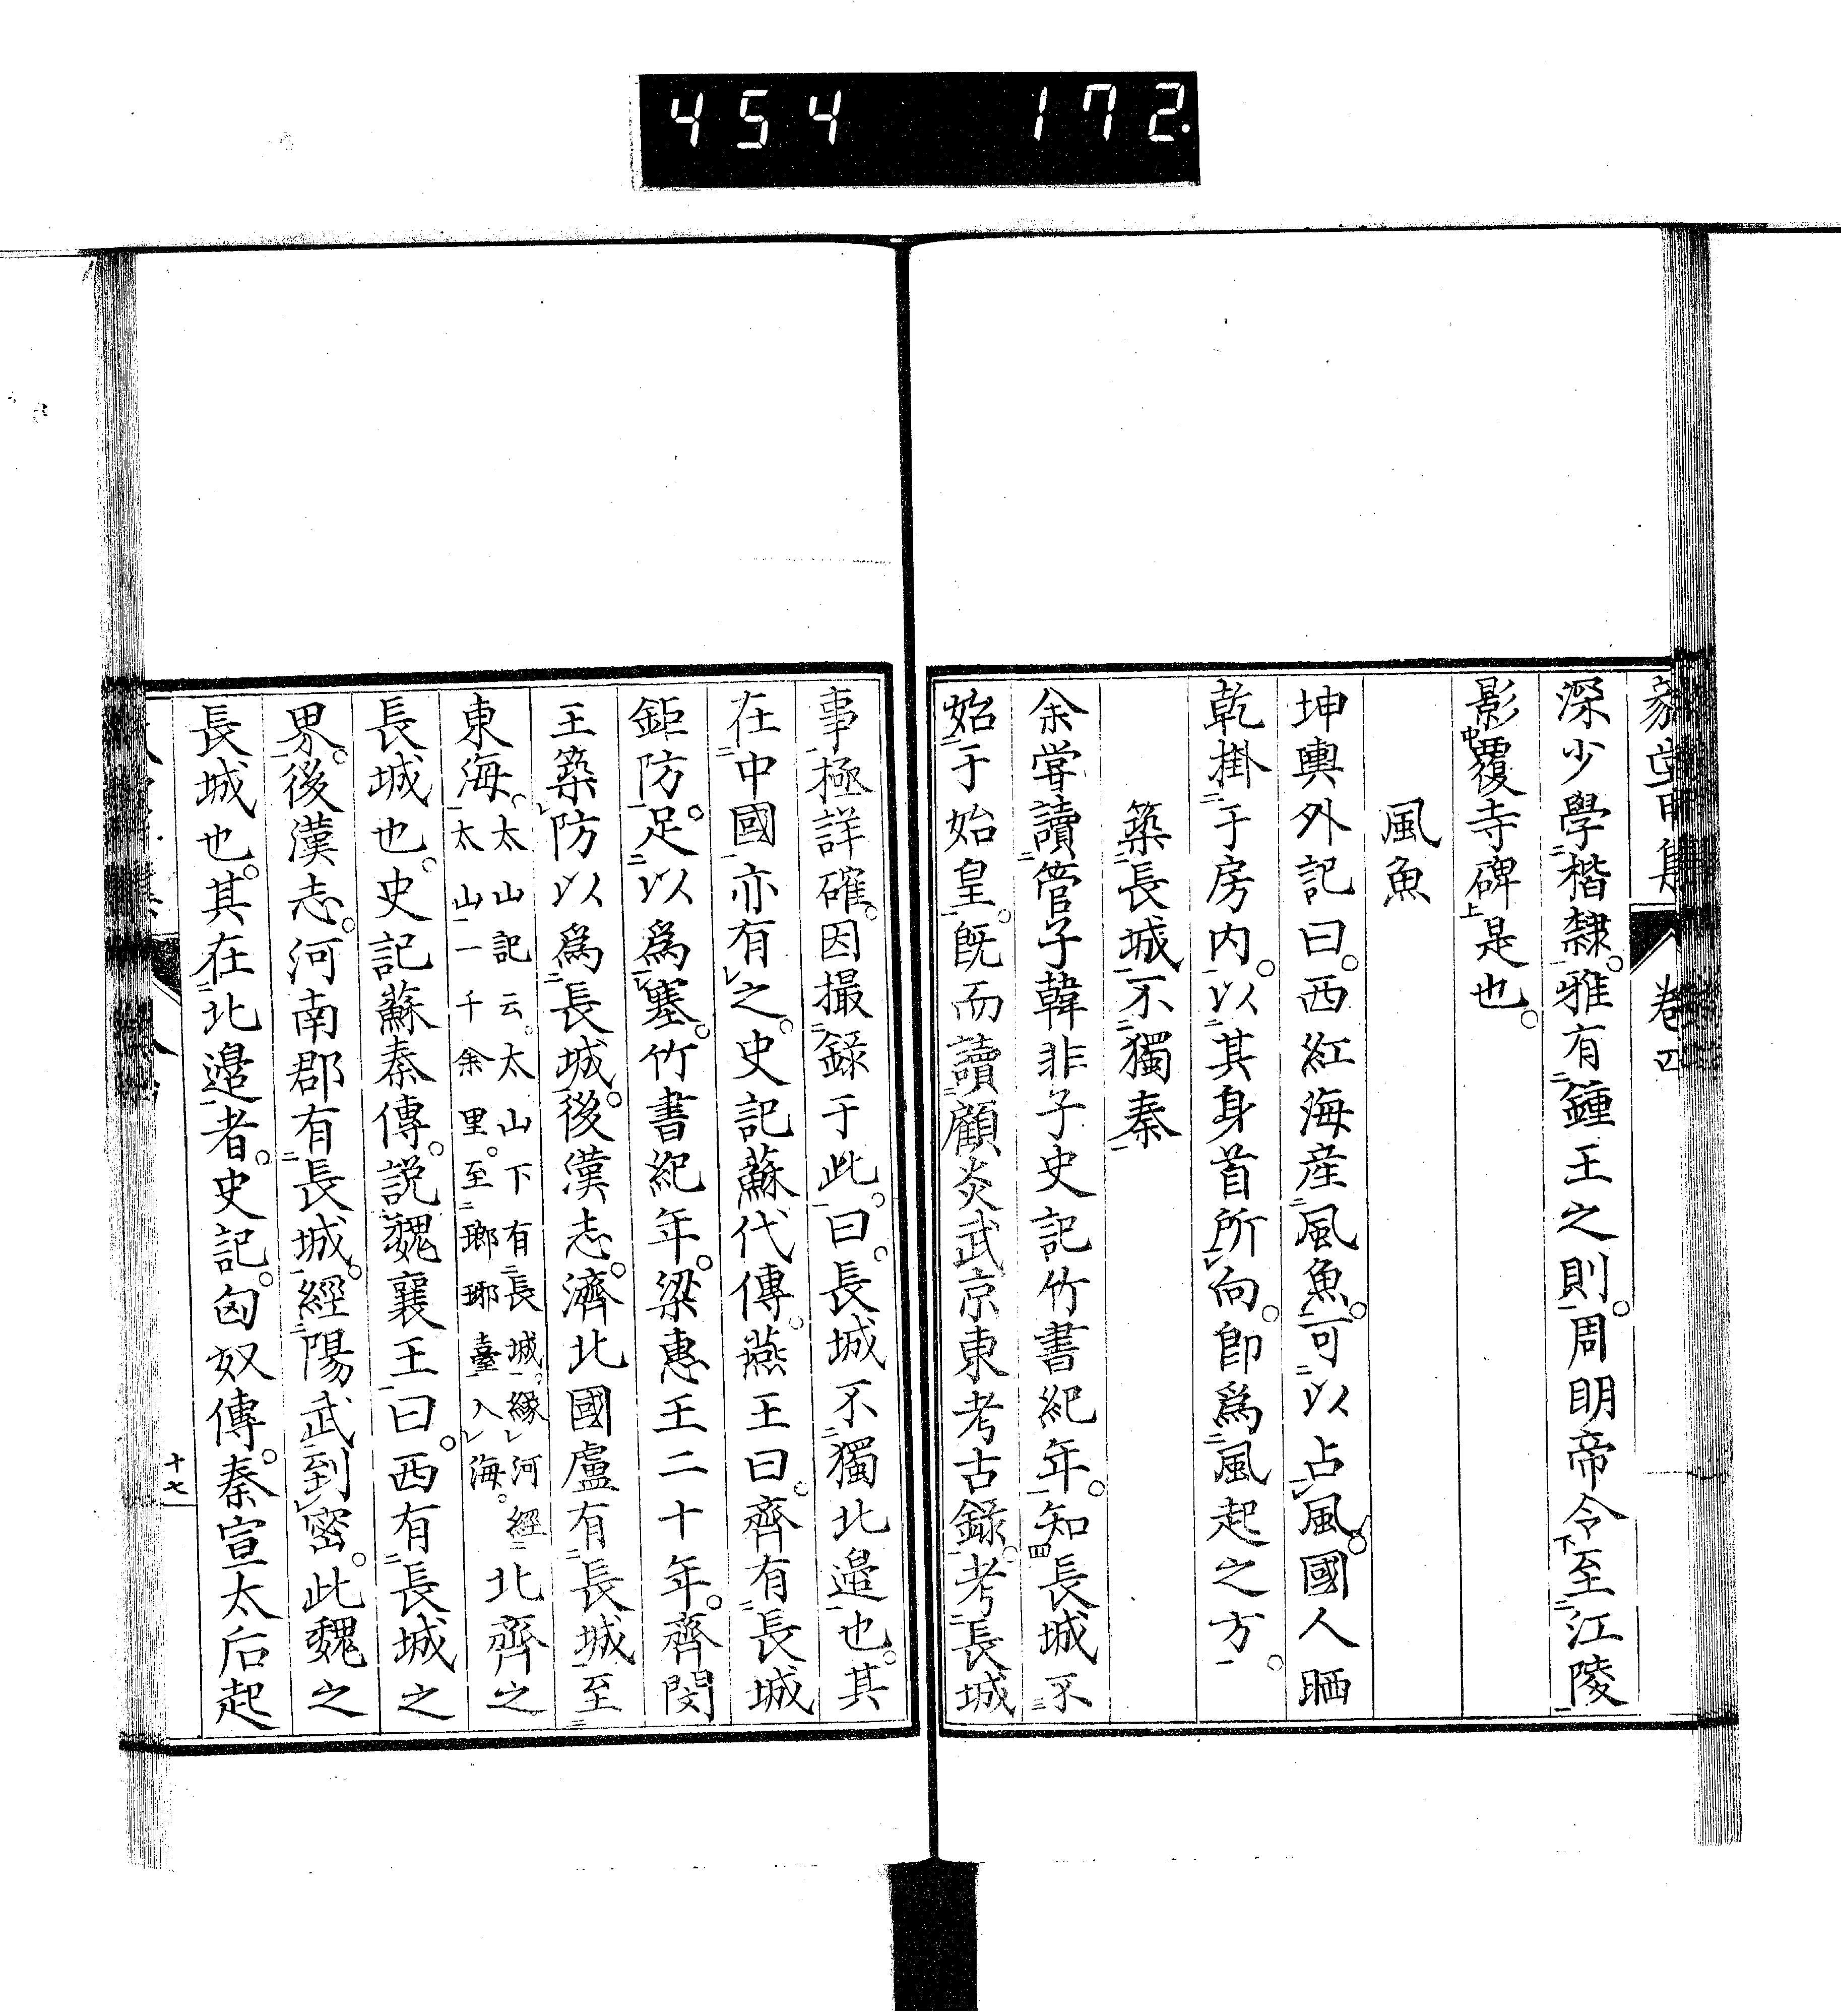 454 172.
卷四
深少學楷隸。雅有鍾王之則。周明帝令至江陵
影覆寺碑是也。
風魚
坤輿外記曰。西紅海産風魚。可以占風。國人晒
乾掛于房内。以其身首所向。卽爲風起之方。
築長城不獨秦
余嘗讀管子韓非子史記竹書紀年。知長城不
始于始皇。既而讀顧炎武京東考古録。考長城
事極詳確。因撮録于此。曰。長城不獨北邉也。其
在中國亦有之。史記蘇代傳。燕王曰。齊有長城
鉅防。足以爲塞。竹書紀年。梁惠王二十年。齊閔
王築防以爲長城。後漢志。濟北國盧有長城至
東海。太山記云。太山下有長城。緣河經太山一千余里。至瑯琊臺入海。北齊之
長城也。史記蘇秦傳。説魏襄王曰。西有長城之
界。後漢志。河南郡有長城。經陽武到密。此魏之
長城也。其在北邉者。史記。匈奴傳。秦宣太后起
十七